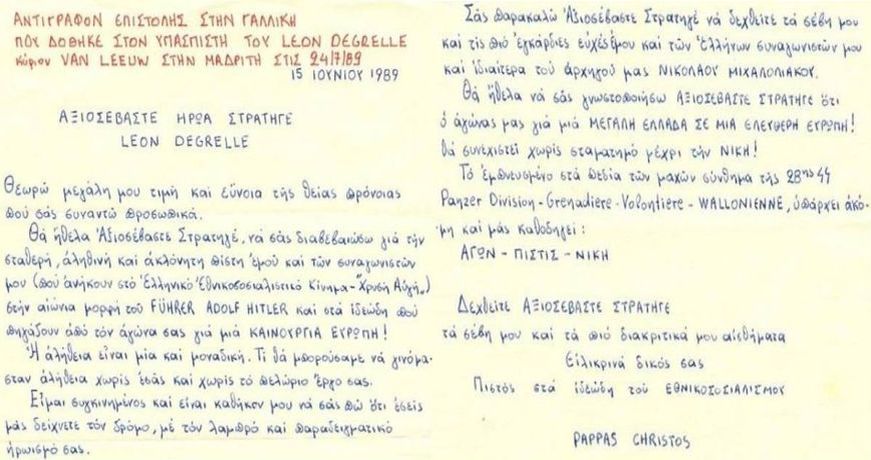 ΑΝΤΙΓΡΑΦΟΝ ΕΠΙΣΤΟΛΗΣ ΣΤΗΝ ΓΑΛΛΙΚΗ
ΠΟΥ ΔΟΘΗΚΕ ΣΤΟΝ ΥΠΑΣΠΙΣΤΗ ΤΟΥ LEON DEGRELLE
κύριον VAN LEEUW ΣΤΗΝ ΜΑΔΡΙΤΗ ΣΤΙΣ 24/7/89
15 ΙΟΥΝΙΟΥ 1989
ΑΞΙΟΣΕΒΑΣΤΕ ΗΡΩΑ ΣΤΡΑΤΗΓΕ
LEON DEGRELLE
Θεωρώ μεγάλη μου τιμή και εύνοια τῆς θείας πρόνοιας
πού σάς συναντώ προσωπικά.
Θά ἤθελα Ἀξιοσέβαστε Στρατηγέ, νά σάς διαβεβαιώσω γιά τήν
σταθερή, ἀληθινή και ἀκλόνητη πίστη ἐμού και τῶν συναγωνιστών
μου (πού ἀνήκουν στό Ἑλληνικό Ἐθνικοσοσιαλιστικό Κίνημα - Χρυσή Αὐγή)
στήν αἰώνια μορφή τού FÜHRER ADOLF HITLER και στά ἰδεώδη πού
πηγάζουν ἀπό τόν ἀγώνα σας γιά μιά ΚΑΙΝΟΥΡΓΙΑ ΕΥΡΩΠΗ!
Ἡ ἀλήθεια εἶναι μία και μοναδική. Τί θά μπορούσαμε νά γινόμα-
σταν ἀλήθεια χωρίς ἐσάς και χωρίς τό πελώριο ἔργο σας.
Εἶμαι συγκινημένος και εἶναι καθῆκον μου νά σάς πῶ ὅτι ἐσείς
μάς δείχνετε τόν δρόμο, μέ τόν λαμπρό και παραδειγματικό
ἡρωισμό σας.
Σάς παρακαλώ Ἀξιοσέβαστε Στρατηγέ νά δεχθείτε τά σέβη μου
και τίς πιό ἐγκάρδιες εὐχές ἐμού και τῶν Ἑλλήνων συναγωνιστών μου
και ἰδιαίτερα τού ἀρχηγού μας ΝΙΚΟΛΑΟΥ ΜΙΧΑΛΟΛΙΑΚΟΥ.
Θά ἤθελα νά σάς γνωστοποιήσω ΑΞΙΟΣΕΒΑΣΤΕ ΣΤΡΑΤΗΓΕ ὅτι
ὁ ἀγώνας μας γιά μιά ΜΕΓΑΛΗ ΕΛΛΑΔΑ ΣΕ ΜΙΑ ΕΛΕΥΘΕΡΗ ΕΥΡΩΠΗ!
θά συνεχιστεί χωρίς σταματημό μέχρι τήν ΝΙΚΗ!
Τό ἐμπνευσμένο στά πεδία τῶν μαχών σύνθημα τῆς 28ης ϟϟ
Panzer Division - Grenadiere - Volontiere - WALLONIENNE, ὑπάρχει ἀκό-
μη και μάς καθοδηγεί:
ΑΓΩΝ - ΠΙΣΤΙΣ - ΝΙΚΗ
Δεχθείτε ΑΞΙΟΣΕΒΑΣΤΕ ΣΤΡΑΤΗΓΕ
τά σέβη μου και τά πιό διακριτικά μου αἰσθήματα
Εἰλικρινά δικός σας
Πιστός στά ἰδεώδη τού ΕΘΝΙΚΟΣΟΣΙΑΛΙΣΜΟΥ
PAPPAS CHRISTOS